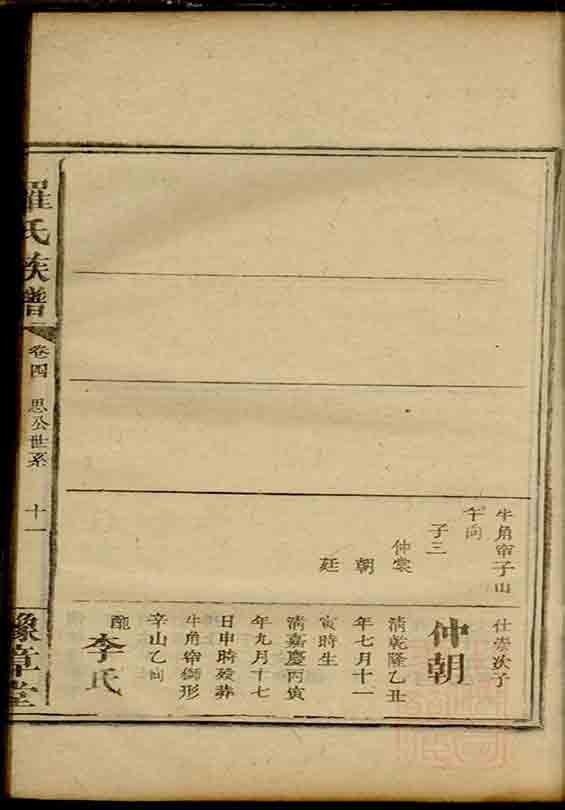 牛角帘子山
午向
子三
仲裳
朝
廷
仕崇次子
仲朝
清乾隆乙丑
年七月十一
寅時生
清嘉慶丙寅
年九月十七
日申時歿葬
牛角帘獅形
辛山乙向
配
李氏
羅氏族譜
卷四
思公世系
十一
豫章堂